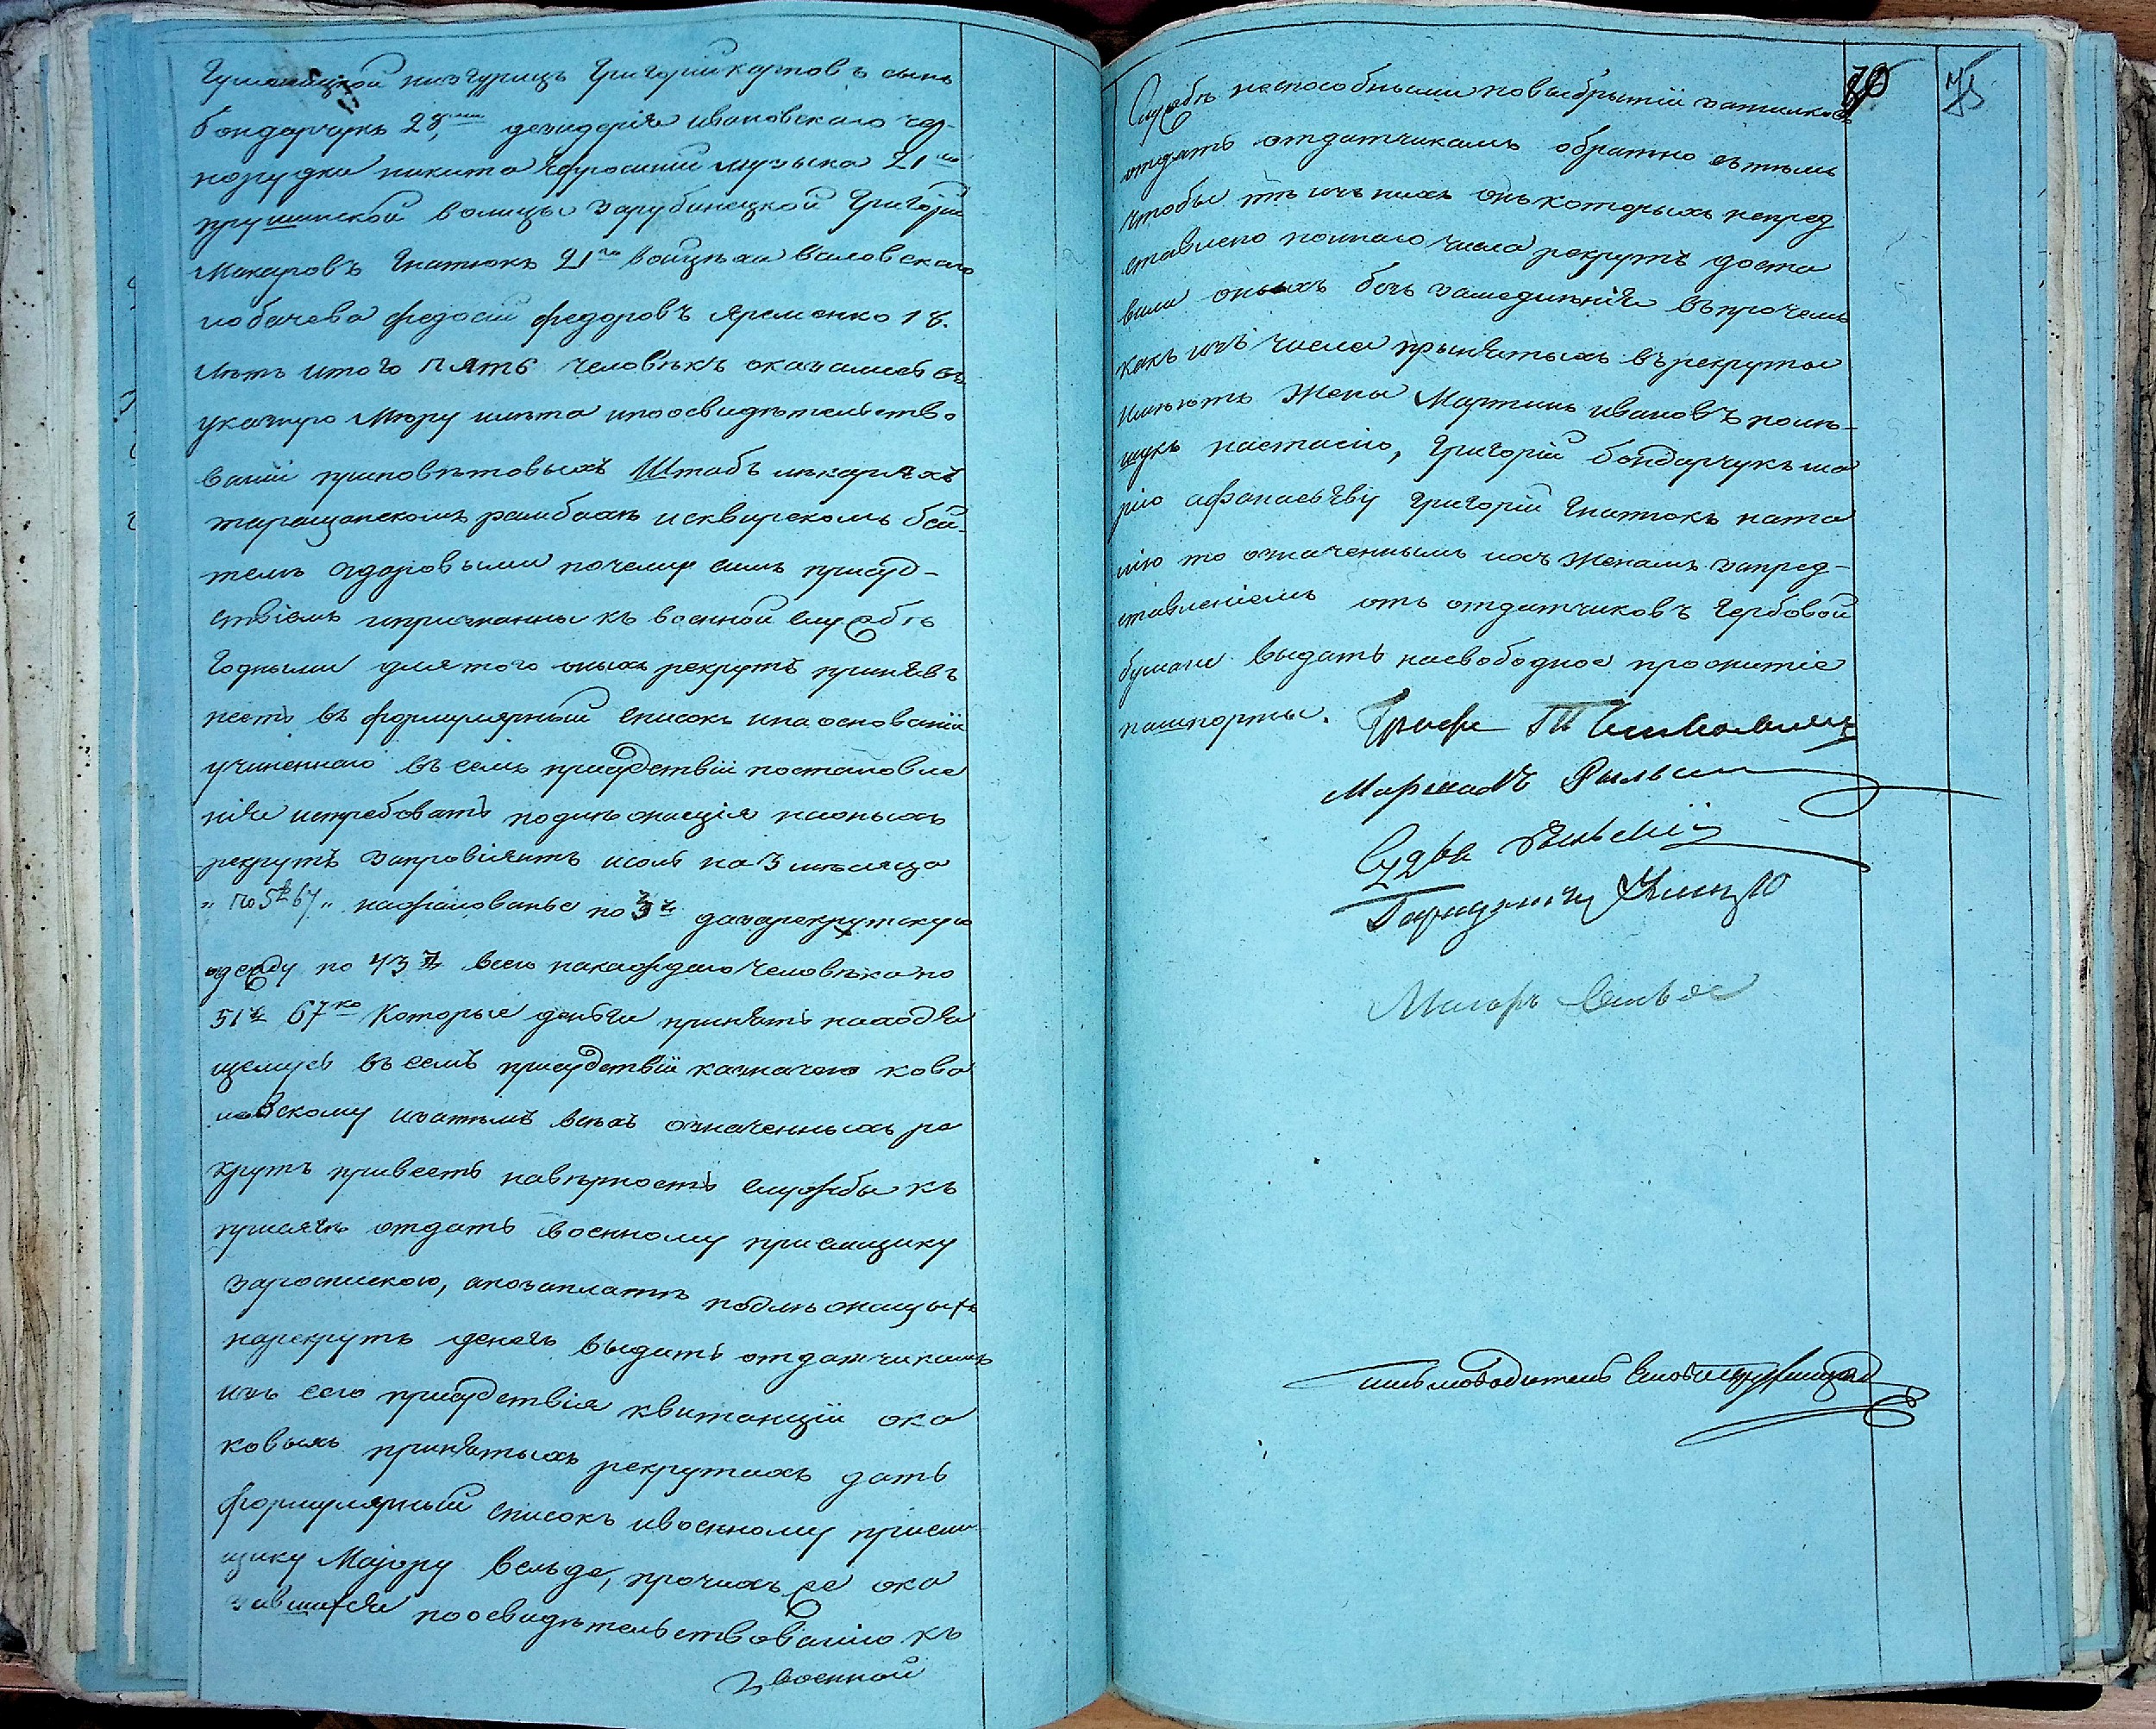 Григорий карповъ сынъ
бондарчукъ 28, дезидерія ивановскаго чер-
норудки никита музыка 21
волицы зарубинецкой Григорій
Макаровъ Игнатюкъ 21 Войцеха Валовскаго
лобачева федосій федоровъ яременко 18.
лѣтъ итого пять человѣкъ оказались въ
указную мѣру лѣта и по освидѣтельство
ваніи приповѣтовыхъ Штабъ лѣкаряхъ
таращанскомъ рамбахъ и сквирскомъ бей-
темъ здоровыми почему симъ присуд-
ствіемъ и признанны къ военной службѣ
Годными для того оныхъ рекрутъ принявъ
несть въ формулярный списокъ и на основаніи
учиненнаго въ семъ присудствіи постановле
нія истребовать подлежащія на оныхъ
рекрутъ за провіянтъ и соль на 3 мѣсяца
" по 5 р 67 " на жалованье по 3 р да за рекрутскую
одежду по 43 р всего на каждаго человѣка по
51 р 67 ко которые деньги принять находя
щемусь въ семъ присудствіи казначею кова
левскому и затемъ всѣхъ означенныхъ ре
крутъ привесть на вѣрность службы къ
присягѣ отдать военному пріемщику
за роспискою, а по заплатѣ подлежащыхъ
на рекрутъ денегъ выдать отдатчикамъ
изъ сего присудствія квитанціи ока
ковыхъ принятыхъ рекрутахъ дать
формулярный списокъ и военному пріем-
щику Маіору вельде, прочихъ же ока
завшихся по освидѣтельствованію къ
военной
75
Службѣ неспособными по выбрытіи затилковъ
отдать отдатчикамъ обратно сътемъ
чтобы тѣ изъ нихъ онъ которыхъ непред
ставлено полнаго числа рекрутъ доста
вили оныхъ безъ замедленія въпрочемъ
какъ изъ числа принятыхъ въ рекруты
имеютъ жены Мартинъ ивановъ поли-
щукъ настасію, Григорій бондарчукъ ма
рію афанасьеву Григорій Игнатюкъ ната
лію то означеннымъ ихъ женамъ запред-
ставленіемъ отъ отдатчиковъ Гербовой
бумаги выдать на свободное прожитіе
пашпорты. Графъ
Маршалъ
Судья
Маіоръ Вельде
письмоводитель